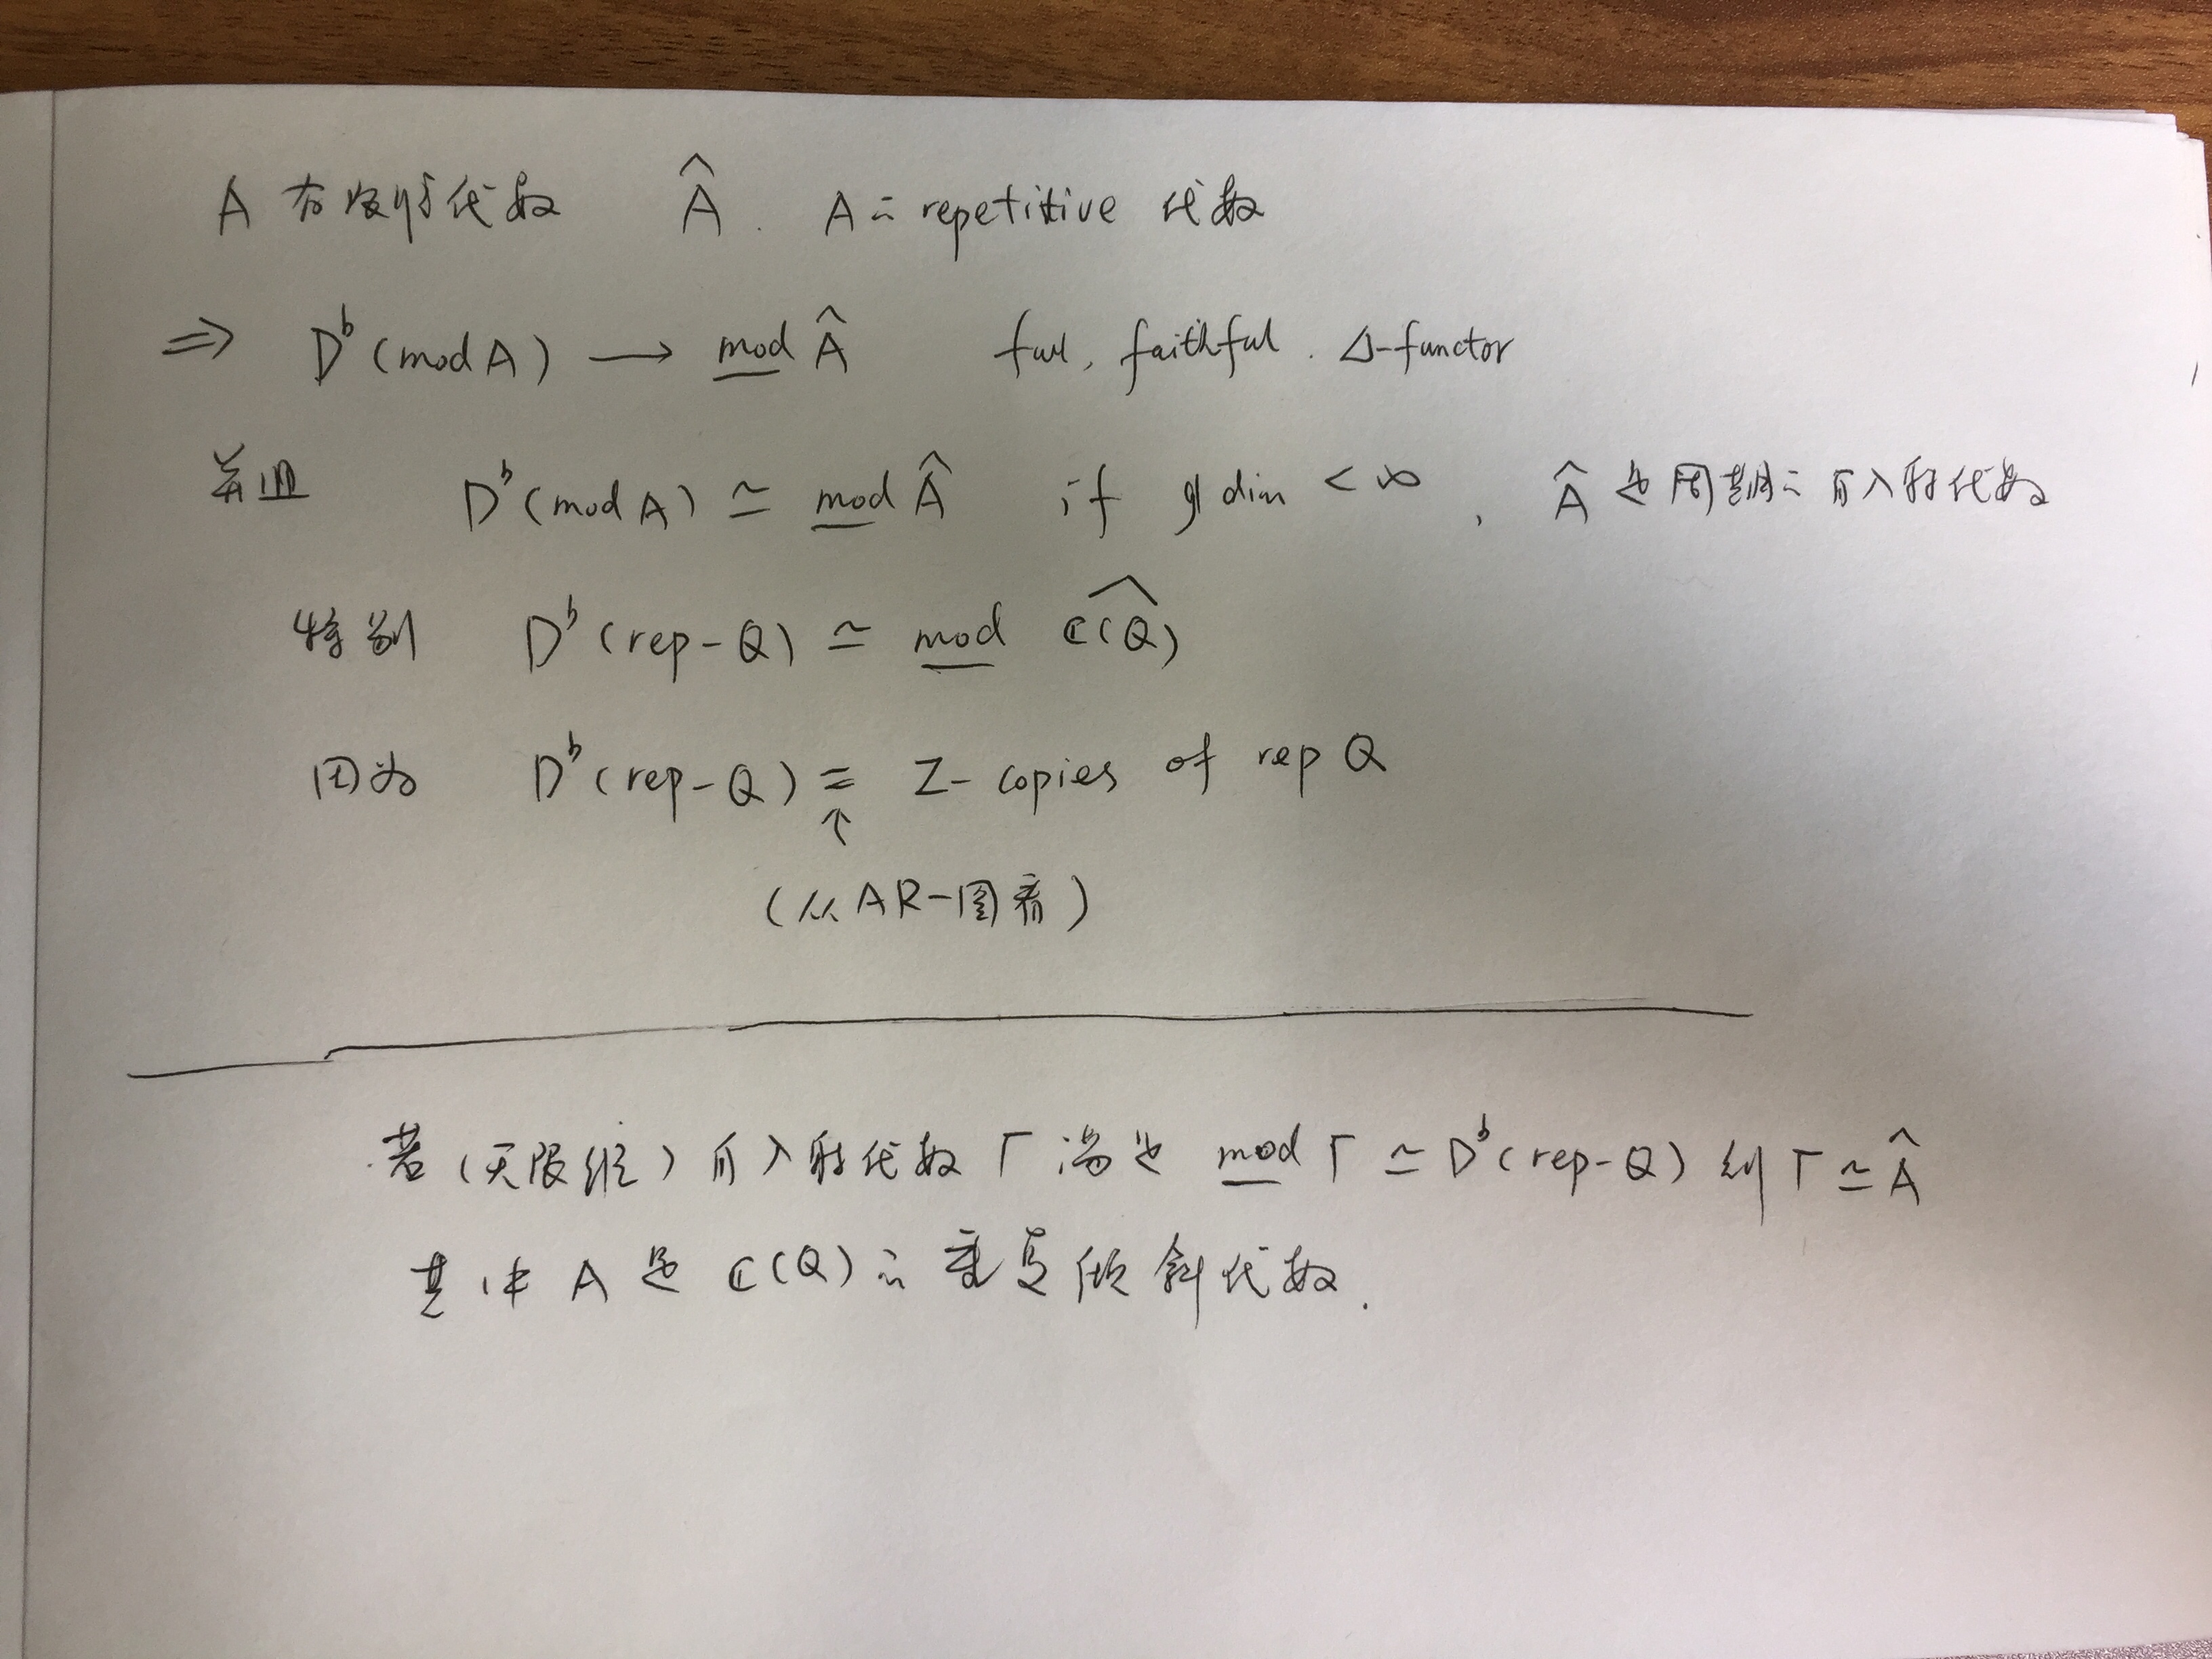 A 有限维代数 Â. A的repetitive 代数
⇒ Dᵇ(mod A) → m̲o̲d̲ Â full, faithful. Δ-functor
并且 Dᵇ(mod A) ≃ m̲o̲d̲ Â if gl dim < ∞, Â 是周期的自入射代数
特别 Dᵇ(rep-Q) ≃ m̲o̲d̲ ℂ(Q)^
因为 Dᵇ(rep-Q) = Z-copies of rep Q
↑
(从AR-图看)
若(无限维)自入射代数 Γ 满足 m̲o̲d̲ Γ ≃ Dᵇ(rep-Q) 则 Γ ≃ Â
其中 A 是 ℂ(Q)的重复倾斜代数.